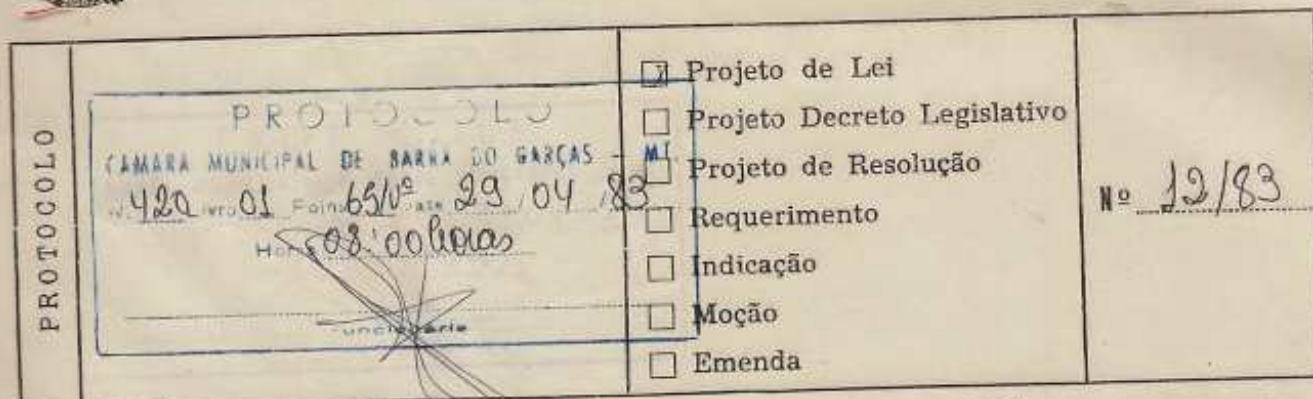 PROTOCOLO
PROTOCOLO
CAMARA MUNICIPAL DE BARRA DO GARÇAS - MT.
Nº 420 Livro 01 Folha 65/Vº Data 29/04/83
Hora 08:00 horas
Funcionário
☑ Projeto de Lei
☐ Projeto Decreto Legislativo
☐ Projeto de Resolução
☐ Requerimento
☐ Indicação
☐ Moção
☐ Emenda
Nº 12/83